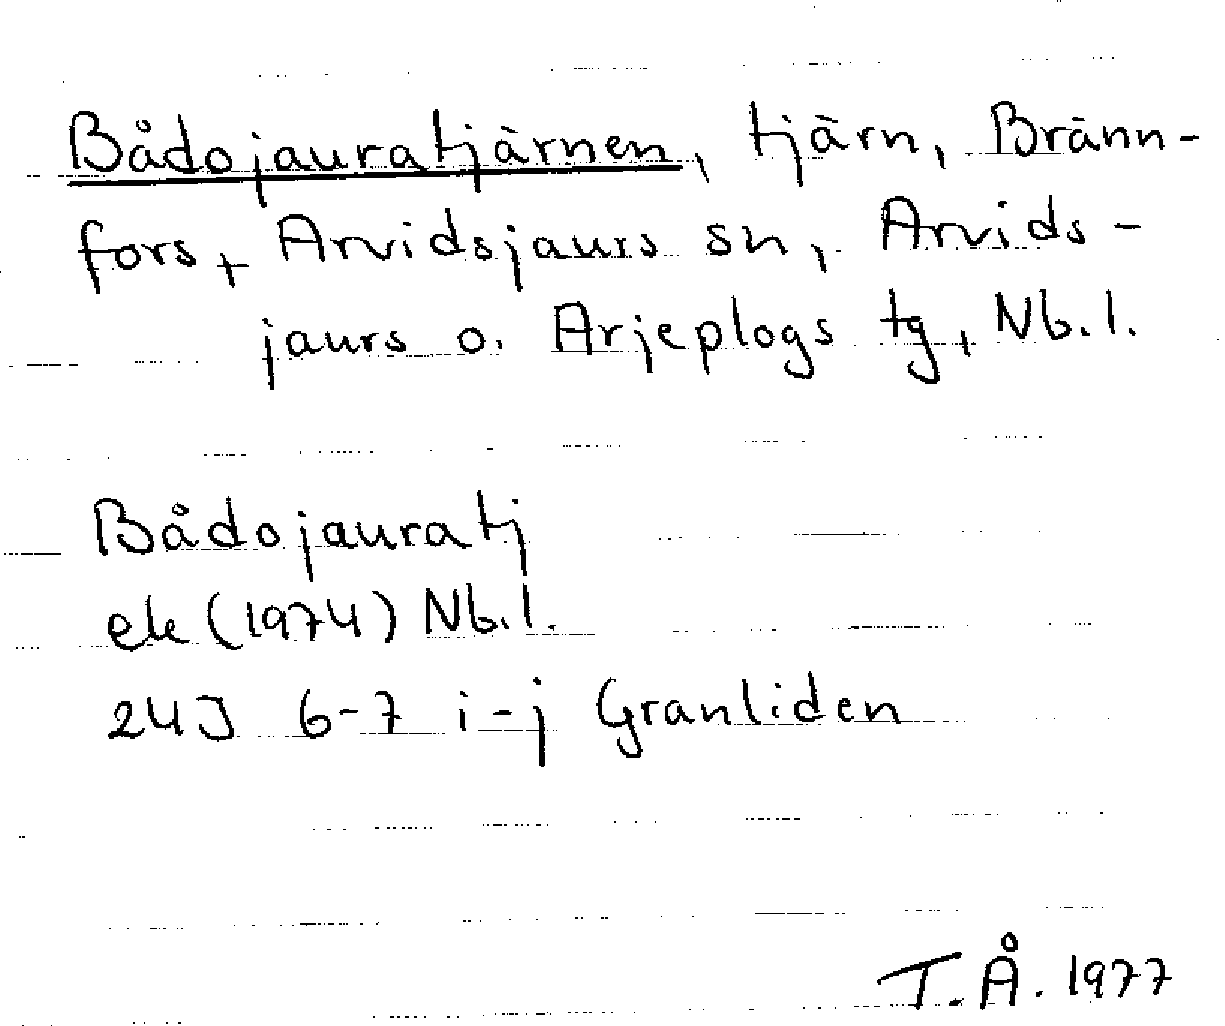 Bådojauratjärnen, tjärn, Bränn-
fors, Arvidsjaurs sn, Arvids-
jaurs o. Arjeplogs tg, Nb.l.
Bådojauratj
ek (1974) Nb.l.
24J 6-7 i-j Granliden
T.Å. 1977